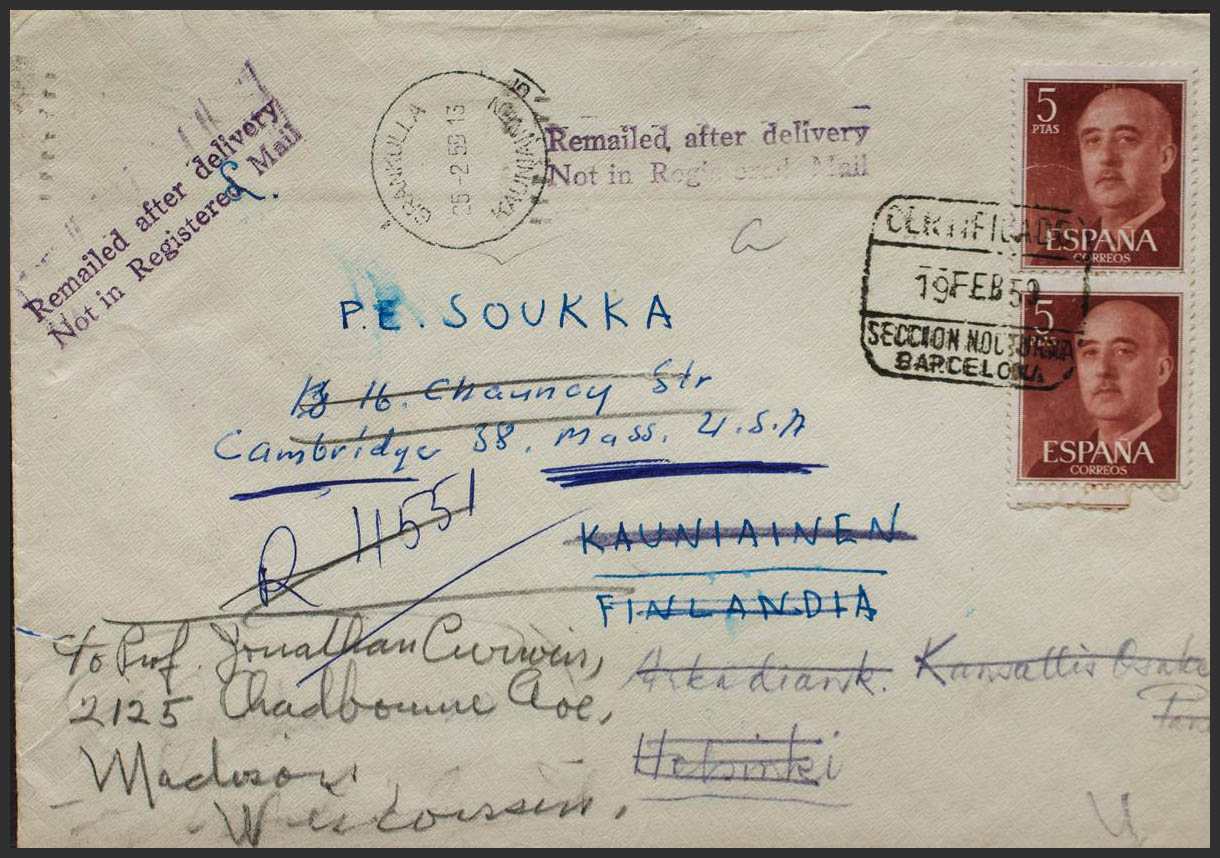 Remailed after delivery
Not in Registered Mail
GRANKULLA
25-2.59 13
KAUNIAINEN
Remailed after delivery
Not in Registered Mail
5
PTAS
ESPAÑA
CORREOS
CERTIFICADO
19 FEB 59
SECCION NOCTURNA
BARCELONA
5
PTAS
ESPAÑA
CORREOS
P.E. SOUKKA
16. Chauncy Str
Cambridge 38. Mass. U.S.A
R 11551
KAUNIAINEN
FINLANDIA
to Prof. Jonathan Curwin,
2125 Chadbourne Ave,
Madison
Wisconsin,
Arkadiank. Kansallis Osake
Helsinki